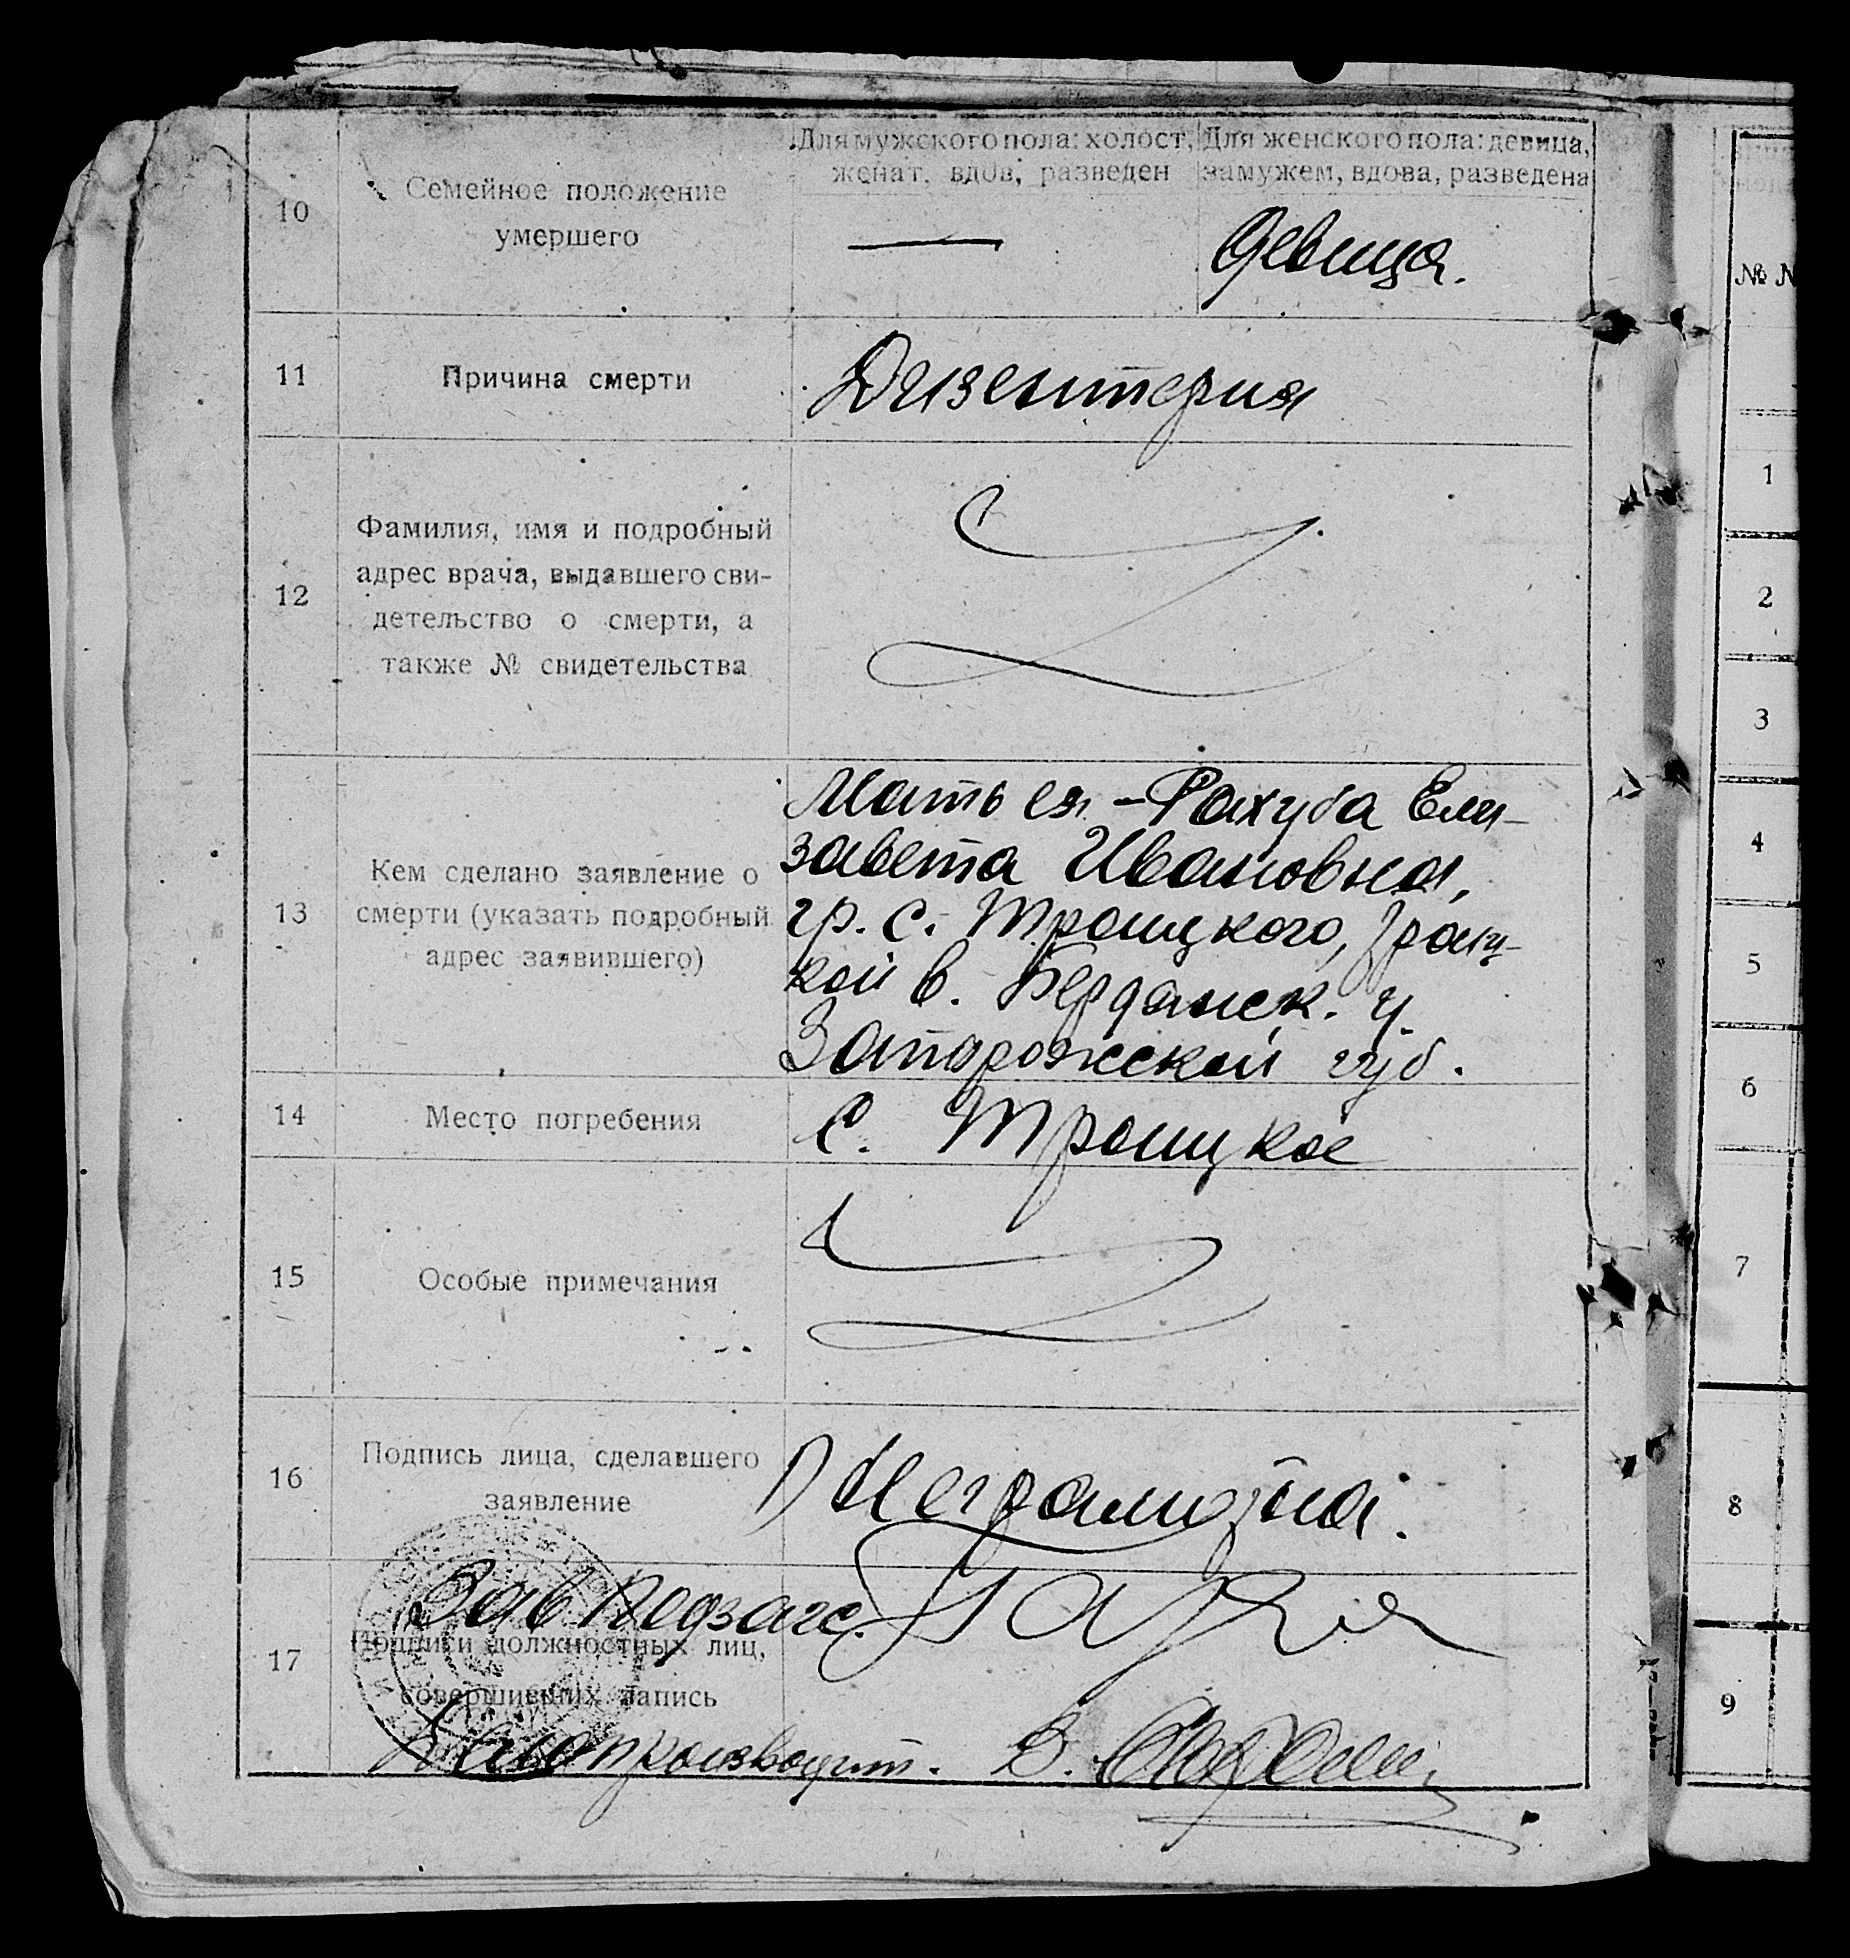 Для мужского пола: холост, женат, вдов, разведен
Для женского пола: девица, замужем, вдова, разведена
10
Семейное положение
умершего
—
Девица.
11
Причина смерти
Дизентерия
12
Фамилия, имя и подробный
адрес врача, выдавшего сви-
детельство о смерти, а
также № свидетельства
13
Кем сделано заявление о
смерти (указать подробный
адрес заявившего)
Мать ея – Рахуба Ели-
завета Ивановна,
гр. с. Троицкого, Троиц-
кой в. Бердянск. у.
Запорожской губ.
14
Место погребения
С. Троицкое
15
Особые примечания
16
Подпись лица, сделавшего
заявление
Неграмотна.
17
Зав. Подзагс.
Подписи должностных лиц,
совершивших запись
Делопроизводит. В.
№ №
1
2
3
4
5
6
7
8
9